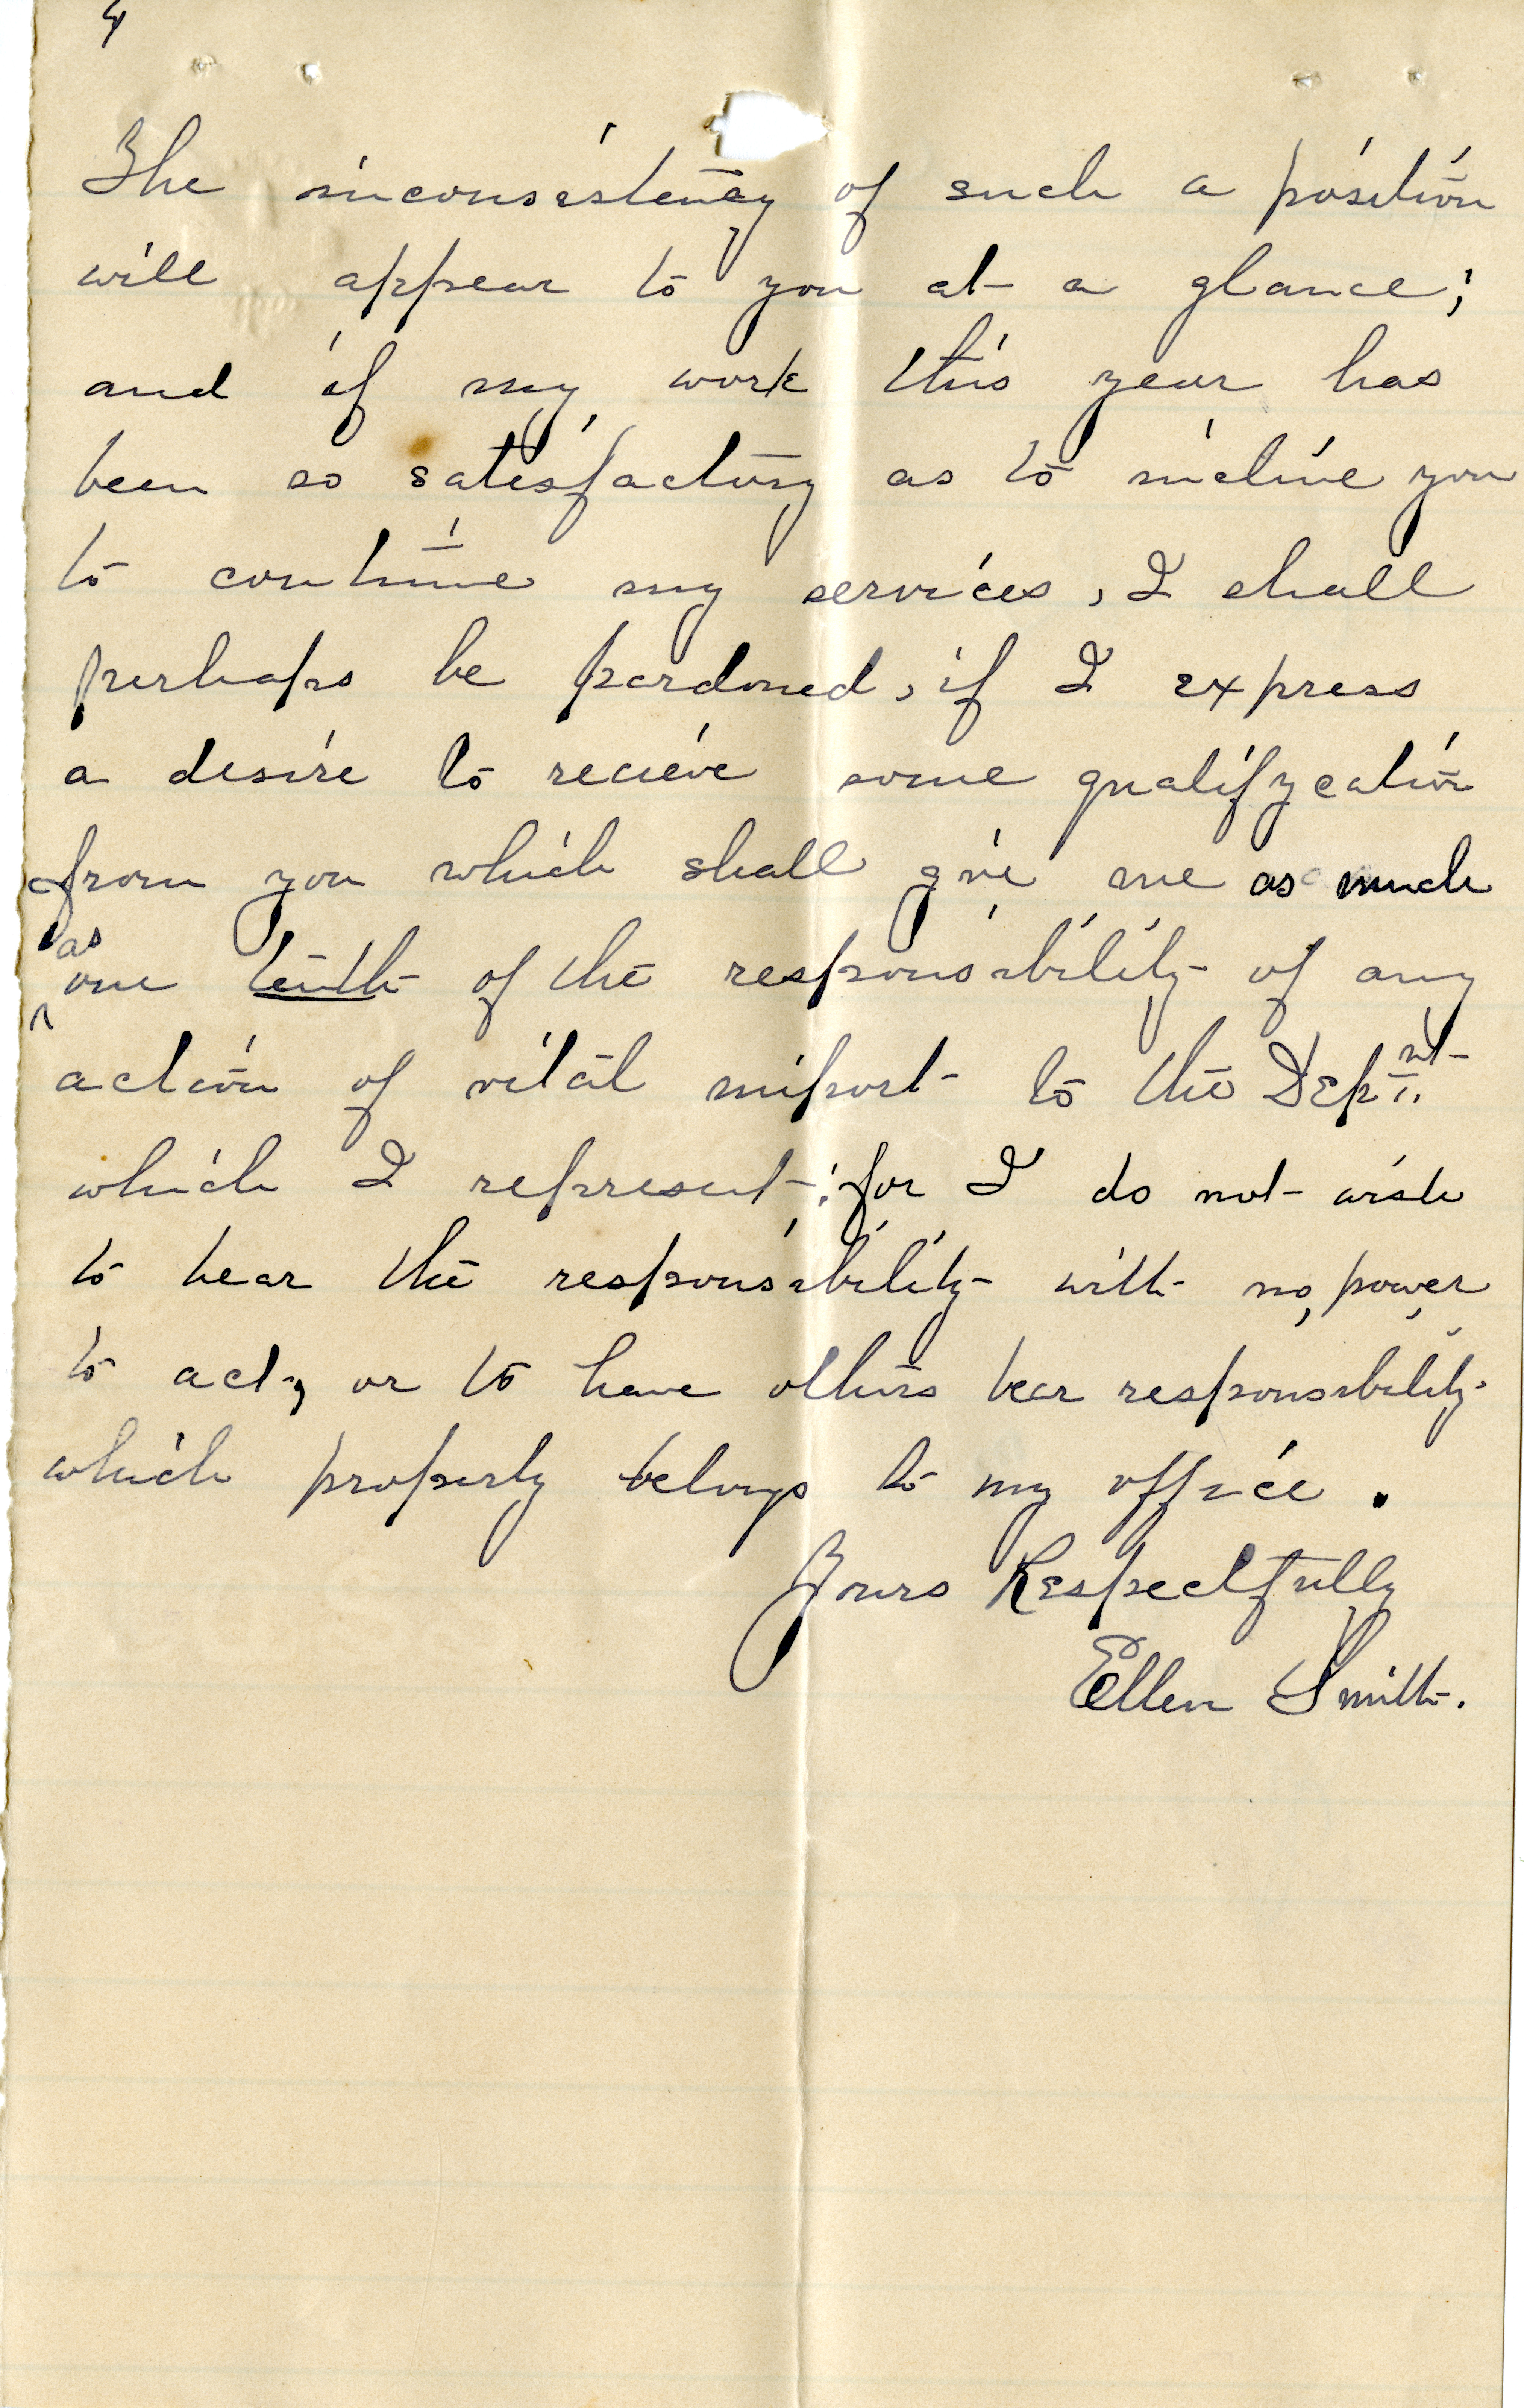 4
The inconsistency of such a position
will appear to you at a glance;
and if my work this year has
been so satisfactory as to incline you
to continue my services, I shall
perhaps be pardoned, if I express
a desire to recieve some qualifycation
from you which shall give me as much
as
one tenth of the responsibility of any
action of vital import to the Dept.
which I represent; for I do not wish
to bear the responsibility with no power
to act, or to have others bear responsibility
which properly belongs to my office.
Yours Respectfully
Ellen Smith.